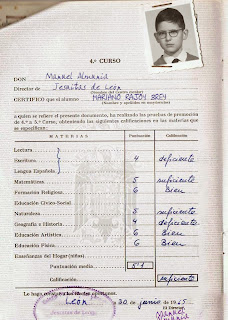 4.º CURSO
DON Manuel Almunia
Director de Jesuitas de León
(Nombre del Centro escolar)
CERTIFICO que el alumno MARIANO RAJOY BREY
(Nombre y apellidos en mayúsculas)
a quien se refiere el presente documento, ha realizado las pruebas de promoción
de 4.º a 5.º Curso, obteniendo las siguientes calificaciones en las materias que
se especifican:
MATERIAS Puntuación Calificación
Lectura
Escritura 4 deficiente
Lengua Española
Matemáticas 5 suficiente
Formación Religiosa 6 Bien
Educación Cívico-Social
Naturaleza 5 suficiente
Geografía e Historia 4 deficiente
Educación Artística 6 Bien
Educación Física 6 Bien
Enseñanzas del Hogar (niñas)
Puntuación media 5'1
Calificación suficiente
Le hago
León 30 de junio de 1965
El Director